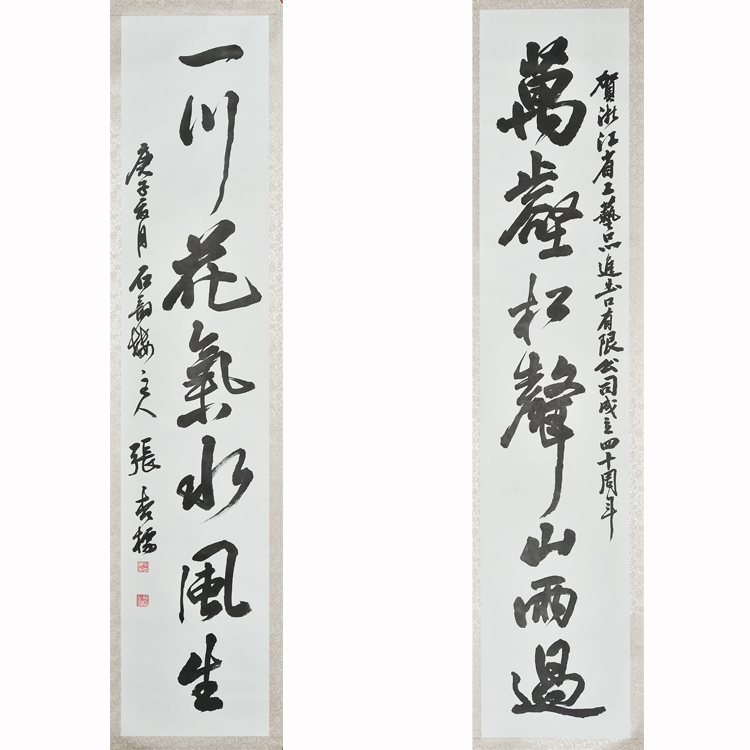 賀浙江省工藝品進出口有限公司成立四十周年
萬壑松聲山雨過
一川花氣水風生
庚子亥月石韵樓主人張